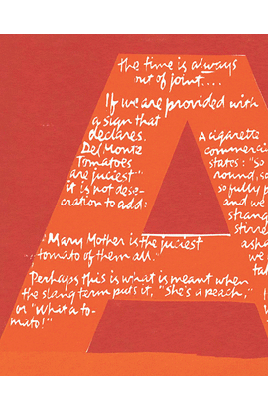 the time is always
out of joint....
If we are provided with
a sign that
declares.
Del Monte
Tomatoes
are juciest"
it is not dese-
cration to add:
"Mary Mother is the juciest
tomato of them all."
Perhaps this is what is meant when
the slang term puts it, "She's a peach,"
or "What a to-
mato!"
A cigarette
commercia
states: "So
round, so
so fully p
and we
strang
stirre
asha
we
tal